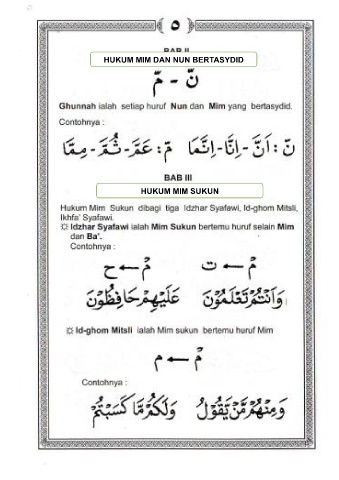 ٥
BAB II
HUKUM MIM DAN NUN BERTASYDID
نّ - مّ
Ghunnah ialah setiap huruf Nun dan Mim yang bertasydid.
Contohnya :
نّ : اَنَّ - اِنَّا - اِنَّمَا مّ : عَمَّ - ثُمَّ - مِمَّا
BAB III
HUKUM MIM SUKUN
Hukum Mim Sukun dibagi tiga Idzhar Syafawi, Id-ghom Mitsli,
Ikhfa' Syafawi.
Idzhar Syafawi ialah Mim Sukun bertemu huruf selain Mim
dan Ba'.
Contohnya :
مْ ← ت مْ ← ح
وَاَنْتُمْ تَعْلَمُوْنَ عَلَيْهِمْ حَافِظُوْنَ
Id-ghom Mitsli ialah Mim sukun bertemu huruf Mim
مْ ← م
Contohnya :
وَمِنْهُمْ مَّنْ يَقُوْلُ وَلَكُمْ مَّا كَسَبْتُمْ